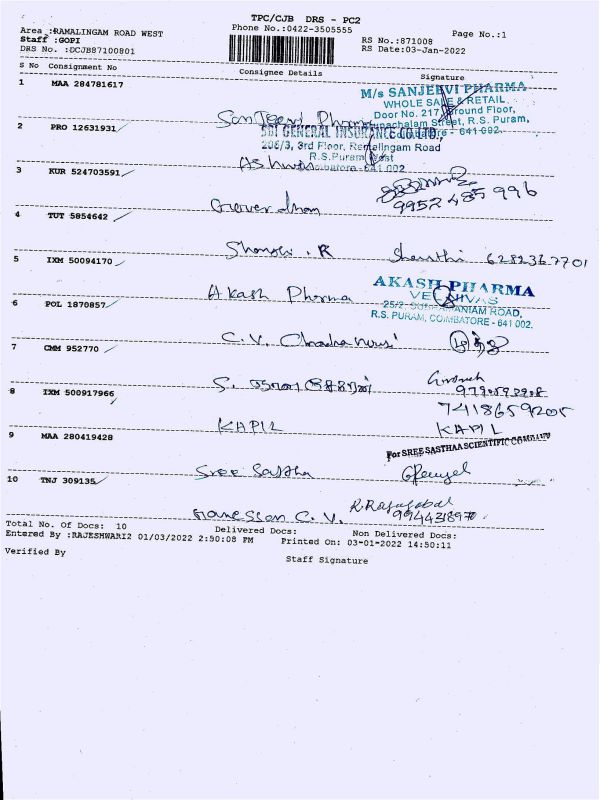 TPC/CJB DRS - PC2
Area :RAMALINGAM ROAD WEST
Phone No.:0422-3505555
Page No.:1
Staff :GOPI
RS No.:871008
DRS No. :DCJB87100801
RS Date:03-Jan-2022
S No Consignment No Consignee Details Signature
1 MAA 284781617
M/s SANJEEVI PHARMA
WHOLE SALE & RETAIL
Door No. 217, Ground Floor,
Sanjeevi Pharma
Street, R.S. Puram,
2 PRO 12631931
SBI GENERAL INSURANCE CO.LTD.,
- 641 002.
206/3, 3rd Floor, Ramalingam Road
R.S.Puram West
Ashwa
Coimbatore-641 002
3 KUR 524703591
9952485996
4 TUT 5854642
5 IXM 50094170
Shanthi . R Shanthi 6282367701
AKASH PHARMA
Akash Pharma
25/2,
R.S. PURAM, COIMBATORE - 641 002.
6 POL 1870857
C.V.
7 CMM 952770
S.
8 IXM 500917966
7418659205
KAPIL KAPIL
9 MAA 280419428
For SREE SASTHAA SCIENTIFIC COMPANY
Sree Sastha
10 TNJ 309135
C.V.
R.Rajagobal
9944318970
Total No. Of Docs: 10 Delivered Docs: Non Delivered Docs:
Entered By :RAJESHWARI2 01/03/2022 2:50:08 PM Printed On: 03-01-2022 14:50:11
Verified By Staff Signature